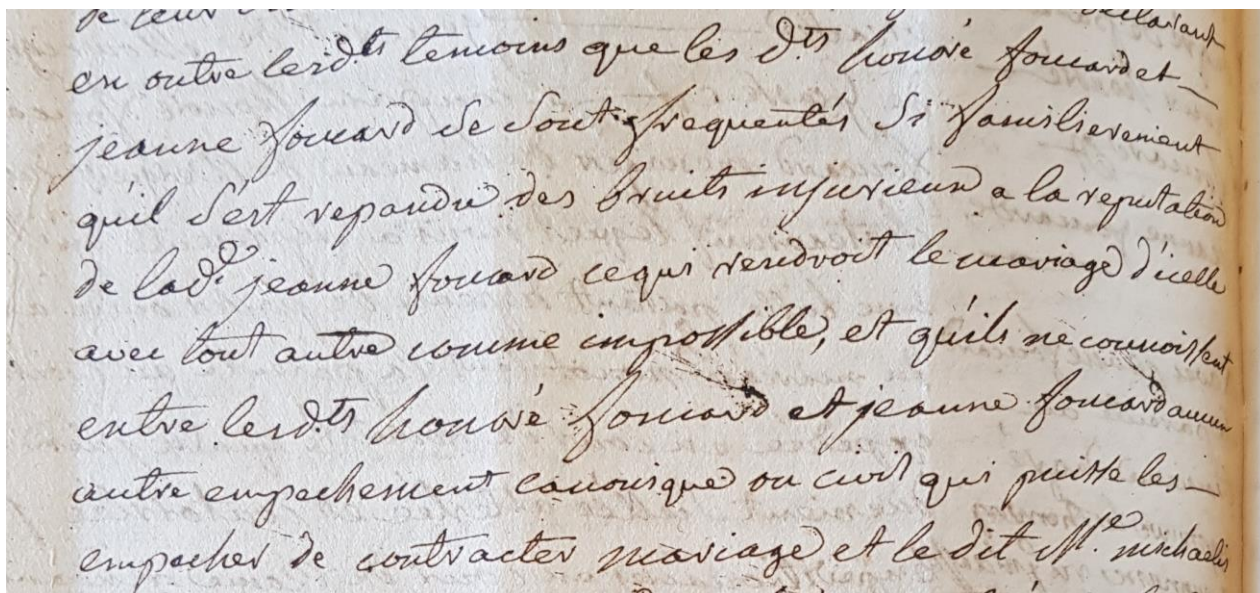 declarant
en outre lesd.ts temoins que les d.ts honoré foucard et
jeanne foucard se sont frequentés si familierement
qu'il s'est repandu des bruits injurieux a la reputation
de lad.e jeanne foucard ce qui rendroit le mariage d'icelle
avec tout autre comme impossible, et qu'ils ne connoissent
entre lesd.ts honoré foucard et jeanne foucard aucun
autre empechement canonique ou civil qui puisse les
empecher de contracter mariage et le dit M.e michaelis